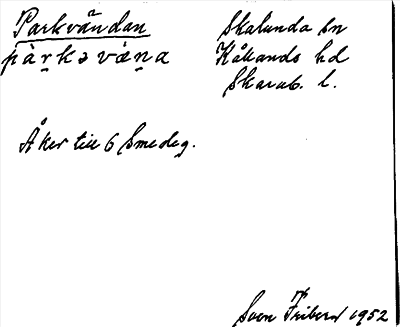 Parkvändan
pàrkəvä́na
Skalunda sn
Kållands hd
Skarab. l.
Åker till 6 Smedeg.
Sven Friberg 1952